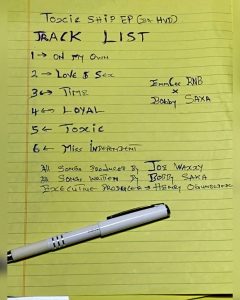 TOXIC SHIP EP
TRACK LIST
1 → ON MY OWN
2 → LOVE & SEX
3 ↔ TIME
4 ← LOYAL
5 ← TOXIC
6 ← MISS INDEPENDENT
EmmCee RNB
x
BOBBY SAXA
All SONGS PRODUCED By JOE WAXXY
All SONGS WRITTEN By BOBBY SAXA
EXECUTIVE PRODUCER → HENRY